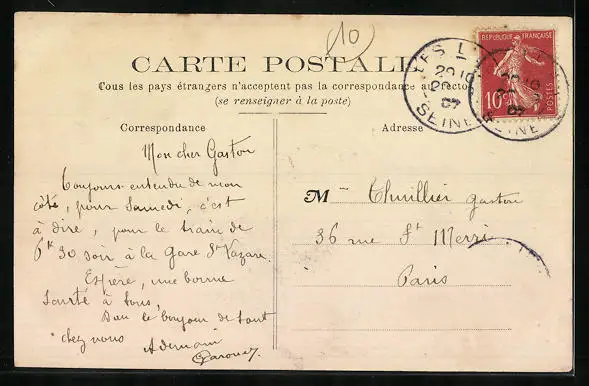 (10)
CARTE POSTALE
Tous les pays étrangers n'acceptent pas la correspondance au recto
(se renseigner à la poste)
Correspondance
Mon cher Gaston
Toujours entendu de mon
côté, pour Samedi, c'est
à dire, pour le train de
6h 30 soir à la Gare St Lazare.
Espère, une bonne
Santé à tous,
Bien le bonjour de tout
chez vous
A demain
Adresse
M Thuillier Gaston
36 rue St Merri
Paris
REPUBLIQUE FRANÇAISE
10c
POSTES
SEINE
07
SEINE